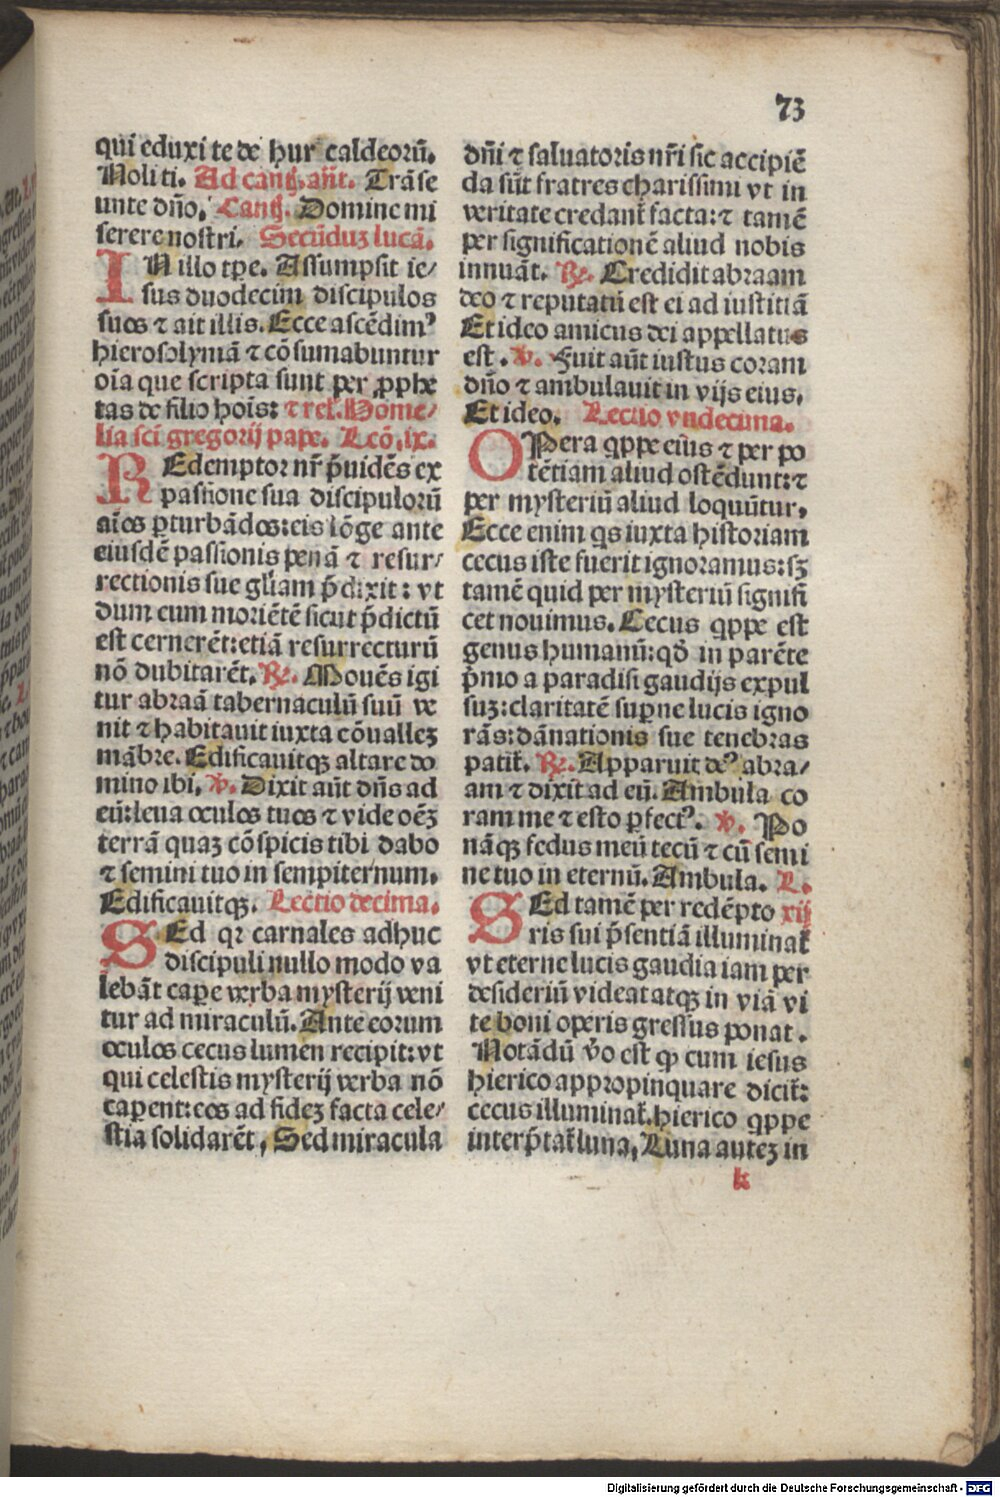 73
qui eduxi te de hur caldeorū.
Noli ti. Ad cantꝭ. añt. Trāse
unte dño. Cantꝭ. Domine mi
serere nostri. Secūduʒ lucā.
IN illo tꝑe. Assumpsit ie/
sus duodecim discipulos
suos ⁊ ait illis. Ecce ascēdimꝰ
hierosolymā ⁊ cōsumabuntur
oīa que scripta sunt per ꝓphe
tas de filio hoīs: ⁊ rel̉. Home/
lia sci gregorij pape. Lcō. ix.
REdemptor nr̄ p̄uidēs ex
passione sua discipulorū
aīos ꝑturbādos: eis lōge ante
eiusdē passionis penā ⁊ resur/
rectionis sue gl̄iam p̄dixit: vt
dum cum moriētē sicut p̄dictū
est cernerēt: etiā resurrecturū
nō dubitarēt. ℞. Mouēs igi
tur abraā tabernaculū suū ve
nit ⁊ habitauit iuxta cōualleʒ
mābre. Edificauitqꝫ altare do
mino ibi. ℣. Dixit aūt dn̄s ad
eū: leua oculos tuos ⁊ vide oēʒ
terrā quaʒ cōspicis tibi dabo
⁊ semini tuo in sempiternum.
Edificauitqꝫ. Lectio decima.
SEd qꝛ carnales adhuc
discipuli nullo modo va
lebāt caꝑe verba mysterij veni
tur ad miraculū. Ante eorum
oculos cecus lumen recipit: vt
qui celestis mysterij verba nō
caꝑent: eos ad fideʒ facta cele/
stia solidarēt, Sed miracula
dn̄i ⁊ saluatoris nr̄i sic accipiē
da sūt fratres charissimi vt in
veritate credant̉ facta: ⁊ tamē
per significationē aliud nobis
innuāt. ℞. Credidit abraam
deo ⁊ reputatū est ei ad iustitiā
Et ideo amicus dei appellatus
est. ℣. Fuit aūt iustus coram
dño ⁊ ambulauit in vijs eius.
Et ideo. Lectio vndecima.
OPera qꝓpe eiūs ⁊ per po
tētiam aliud ostēdunt: ⁊
per mysteriū aliud loquūtur.
Ecce enim qs iuxta historiam
cecus iste fuerit ignoramus: sʒ
tamē quid per mysteriū signifi
cet nouimus. Cecus qꝓpe est
genus humanū: qđ in parēte
p̄mo a paradisi gaudijs expul
suʒ: claritatē suꝑne lucis igno
rās: dānationis sue tenebras
patit̉. ℞. Apparuit deꝰ abra/
am ⁊ dixit ad eū. Ambula co
ram me ⁊ esto ꝑfectꝰ. ℣. Po
nāqꝫ fedus meū tecū ⁊ cū semi
ne tuo in eternū. Ambula. L.
SEd tamē per redēpto xij
ris sui p̄sentiā illuminat̉
vt eterne lucis gaudia iam per
desideriū videat atqꝫ in viā vi
te boni operis gressus ponat.
Notādū v̄o est ꝙ cum iesus
hierico appropinquare dicit̉:
cecus illuminat̉. hierico qꝓpe
interp̄tat̉ luna, Luna auteʒ in
k
Digitalisierung gefördert durch die Deutsche Forschungsgemeinschaft - DFG